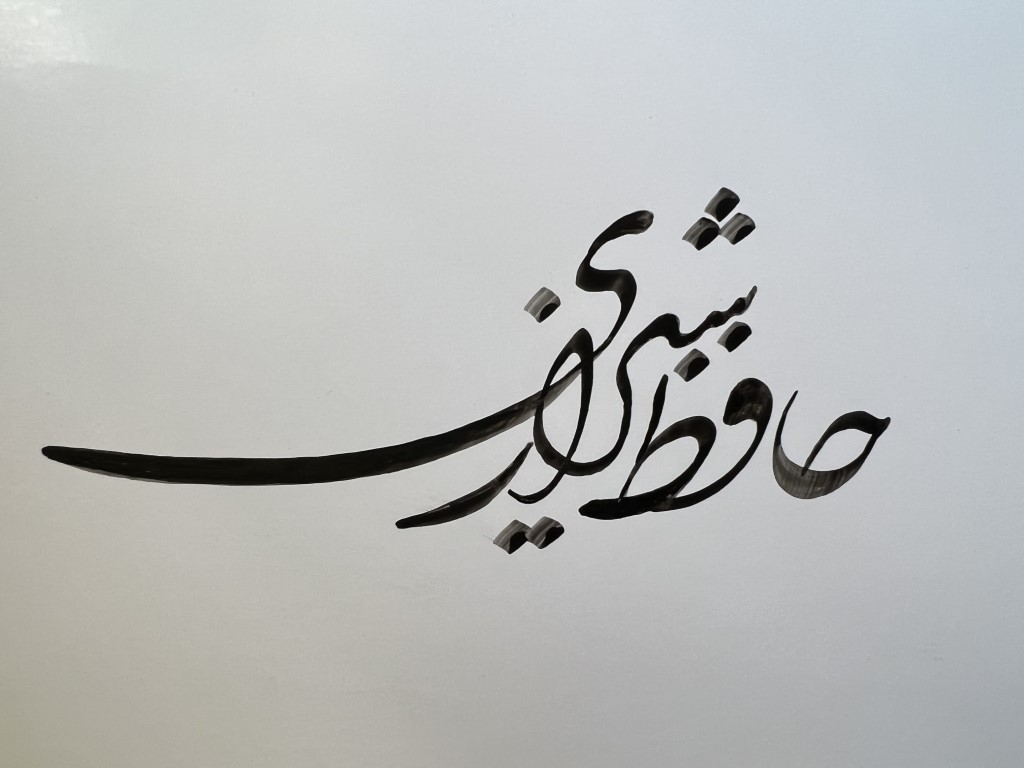 حافظ شیرازی